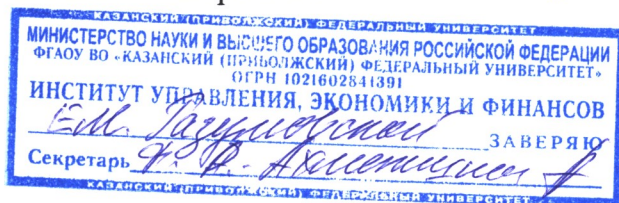 КАЗАНСКИЙ (ПРИВОЛЖСКИЙ) ФЕДЕРАЛЬНЫЙ УНИВЕРСИТЕТ
МИНИСТЕРСТВО НАУКИ И ВЫСШЕГО ОБРАЗОВАНИЯ РОССИЙСКОЙ ФЕДЕРАЦИИ
ФГАОУ ВО «КАЗАНСКИЙ (ПРИВОЛЖСКИЙ) ФЕДЕРАЛЬНЫЙ УНИВЕРСИТЕТ»
ОГРН 1021602841391
ИНСТИТУТ УПРАВЛЕНИЯ, ЭКОНОМИКИ И ФИНАНСОВ
Е.М. Разумовской ЗАВЕРЯЮ
Секретарь
КАЗАНСКИЙ (ПРИВОЛЖСКИЙ) ФЕДЕРАЛЬНЫЙ УНИВЕРСИТЕТ